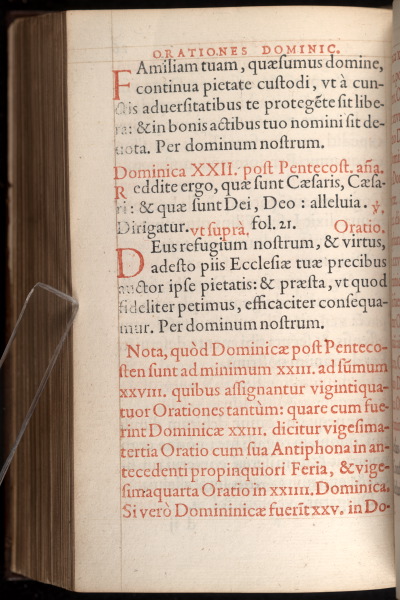 ORATIONES DOMINIC.
FAmiliam tuam, quæsumus domine,
continua pietate custodi, vt à cun-
ctis aduersitatibus te protegēte sit libe-
ra: & in bonis actibus tuo nomini sit de-
uota. Per dominum nostrum.
Dominica XXII. post Pentecost. aña.
Reddite ergo, quæ sunt Cæsaris, Cæsa-
ri: & quæ sunt Dei, Deo: alleluia. ℣.
Dirigatur. vt suprà. fol. 21. Oratio.
DEus refugium nostrum, & virtus,
adesto piis Ecclesiæ tuæ precibus
auctor ipse pietatis: & præsta, vt quod
fideliter petimus, efficaciter consequa-
mur. Per dominum nostrum.
Nota, quòd Dominicæ post Penteco-
sten sunt ad minimum XXIII. ad sũmum
XXVIII. quibus assignantur vigintiqua-
tuor Orationes tantùm: quare cum fue-
rint Dominicæ XXIII. dicitur vigesima-
tertia Oratio cum sua Antiphona in an-
tecedenti propinquiori Feria, & vige-
simaquarta Oratio in XXIIII. Dominica.
Si verò Domininicæ fuerĩt XXV. in Do-